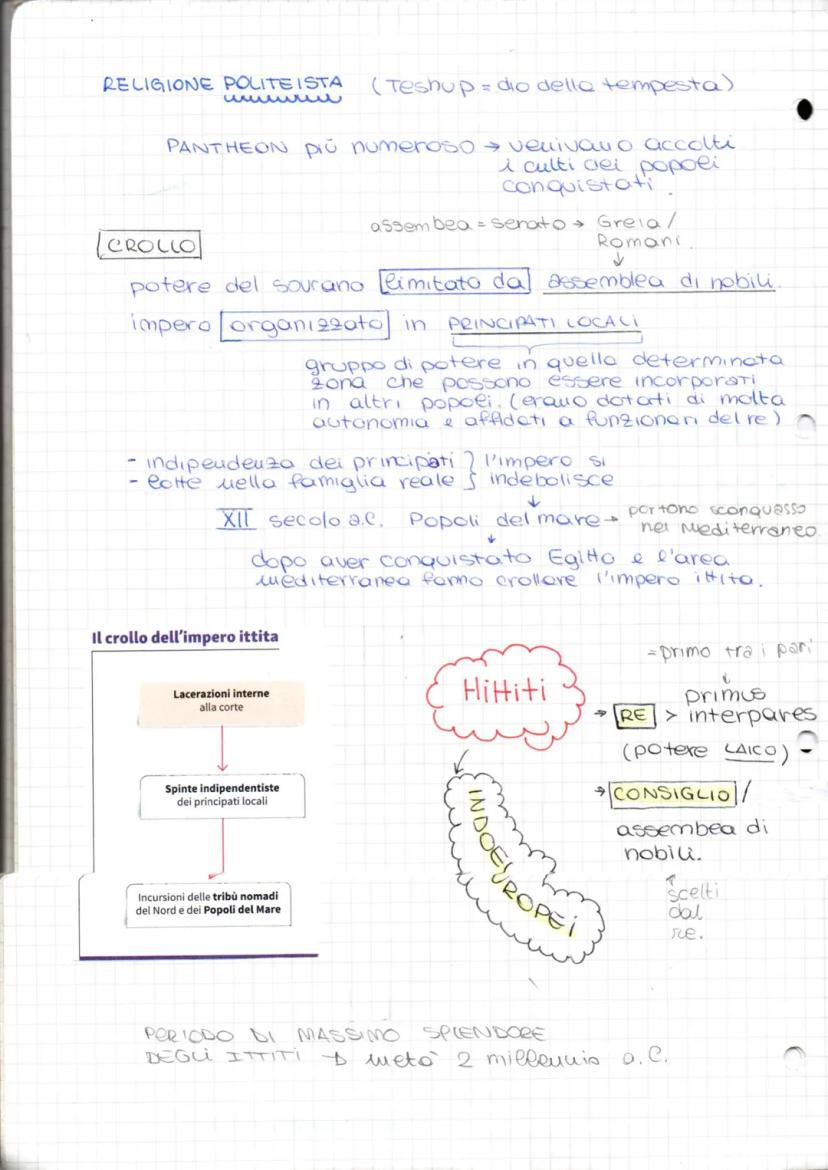 RELIGIONE POLITEISTA (Teshup = dio della tempesta)
PANTHEON più numeroso → venivano accolti
i culti dei popoli
conquistati.
assembea = senato → Greia/
Romani.
CROLLO
potere del sovrano limitato da assemblea di nobili.
impero organizzato in PRINCIPATI LOCALI
gruppo di potere in quella determinata
zona che possono essere incorporati
in altri popoli. (erano dotati di molta
autonomia e affidati a funzionari del re)
- indipendenza dei principati } l'impero si
- lotte nella famiglia reale } indebolisce
XII secolo a.C. Popoli del mare → portono sconquasso
nel Mediterraneo.
dopo aver conquistato Egitto e l'area
mediterranea fanno crollare l'impero ittita.
Il crollo dell'impero ittita
Lacerazioni interne
alla corte
Spinte indipendentiste
dei principati locali
Incursioni delle tribù nomadi
del Nord e dei Popoli del Mare
Hittiti
INDOEUROPEi
= primo tra i pari
↓
primus
→ RE > interpares
(potere LAICO)
→ CONSIGLIO /
assembea di
nobili.
↑
scelti
dal
re.
PERIODO DI MASSIMO SPLENDORE
DEGLI ITTITI → metà 2 millennio a.C.